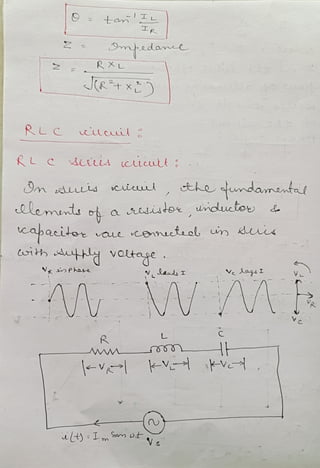 θ = tan⁻¹ I_L / I_R
Z = Impedance
Z = R X_L / √(R² + X_L²)
RLC circuit :
RLC series circuit :
In series circuit, the fundamental
elements of a resistor, inductor &
capacitor are connected in series
with supply voltage.
V_R in phase V_L leads I V_C lags I V_L
V_R
V_C
R L C
V_R V_L V_C
i(t) = I_m sin ωt V_s